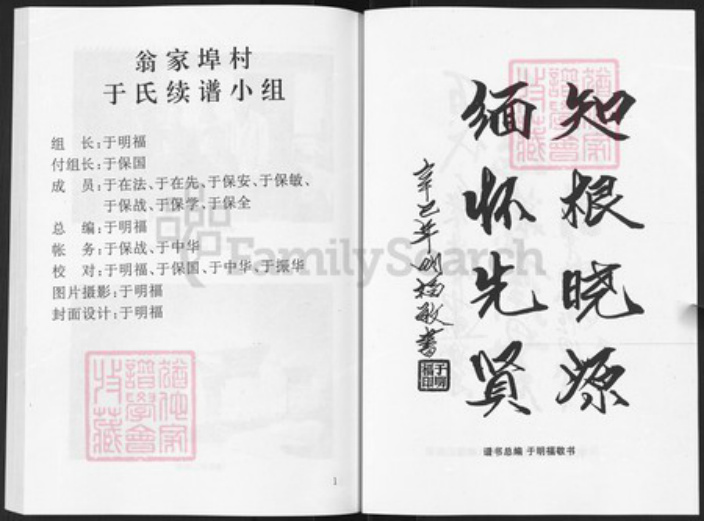 翁家埠村
于氏续谱小组
组　长：于明福
付组长：于保国
成　员：于在法、于在先、于保安、于保敏、
于保战、于保学、于保全
总　编：于明福
帐　务：于保战、于中华
校　对：于明福、于保国、于中华、于振华
图片摄影：于明福
封面设计：于明福
1
FamilySearch
知根晓源
缅怀先贤
辛巳年
敬书
于明福印
谱书总编 于明福敬书